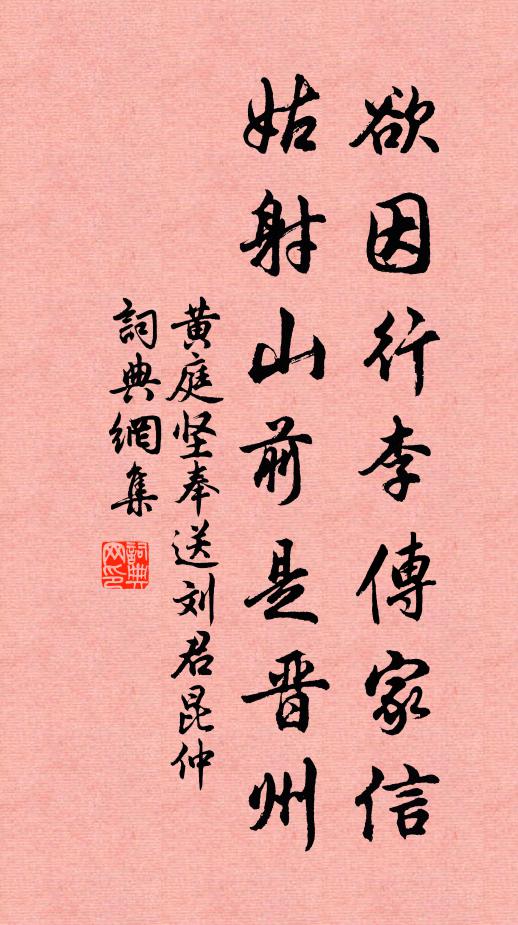 欲因行李傳家信
姑射山前是晋州
黄庭坚奉送刘君昆仲
詞典網集
詞典網印